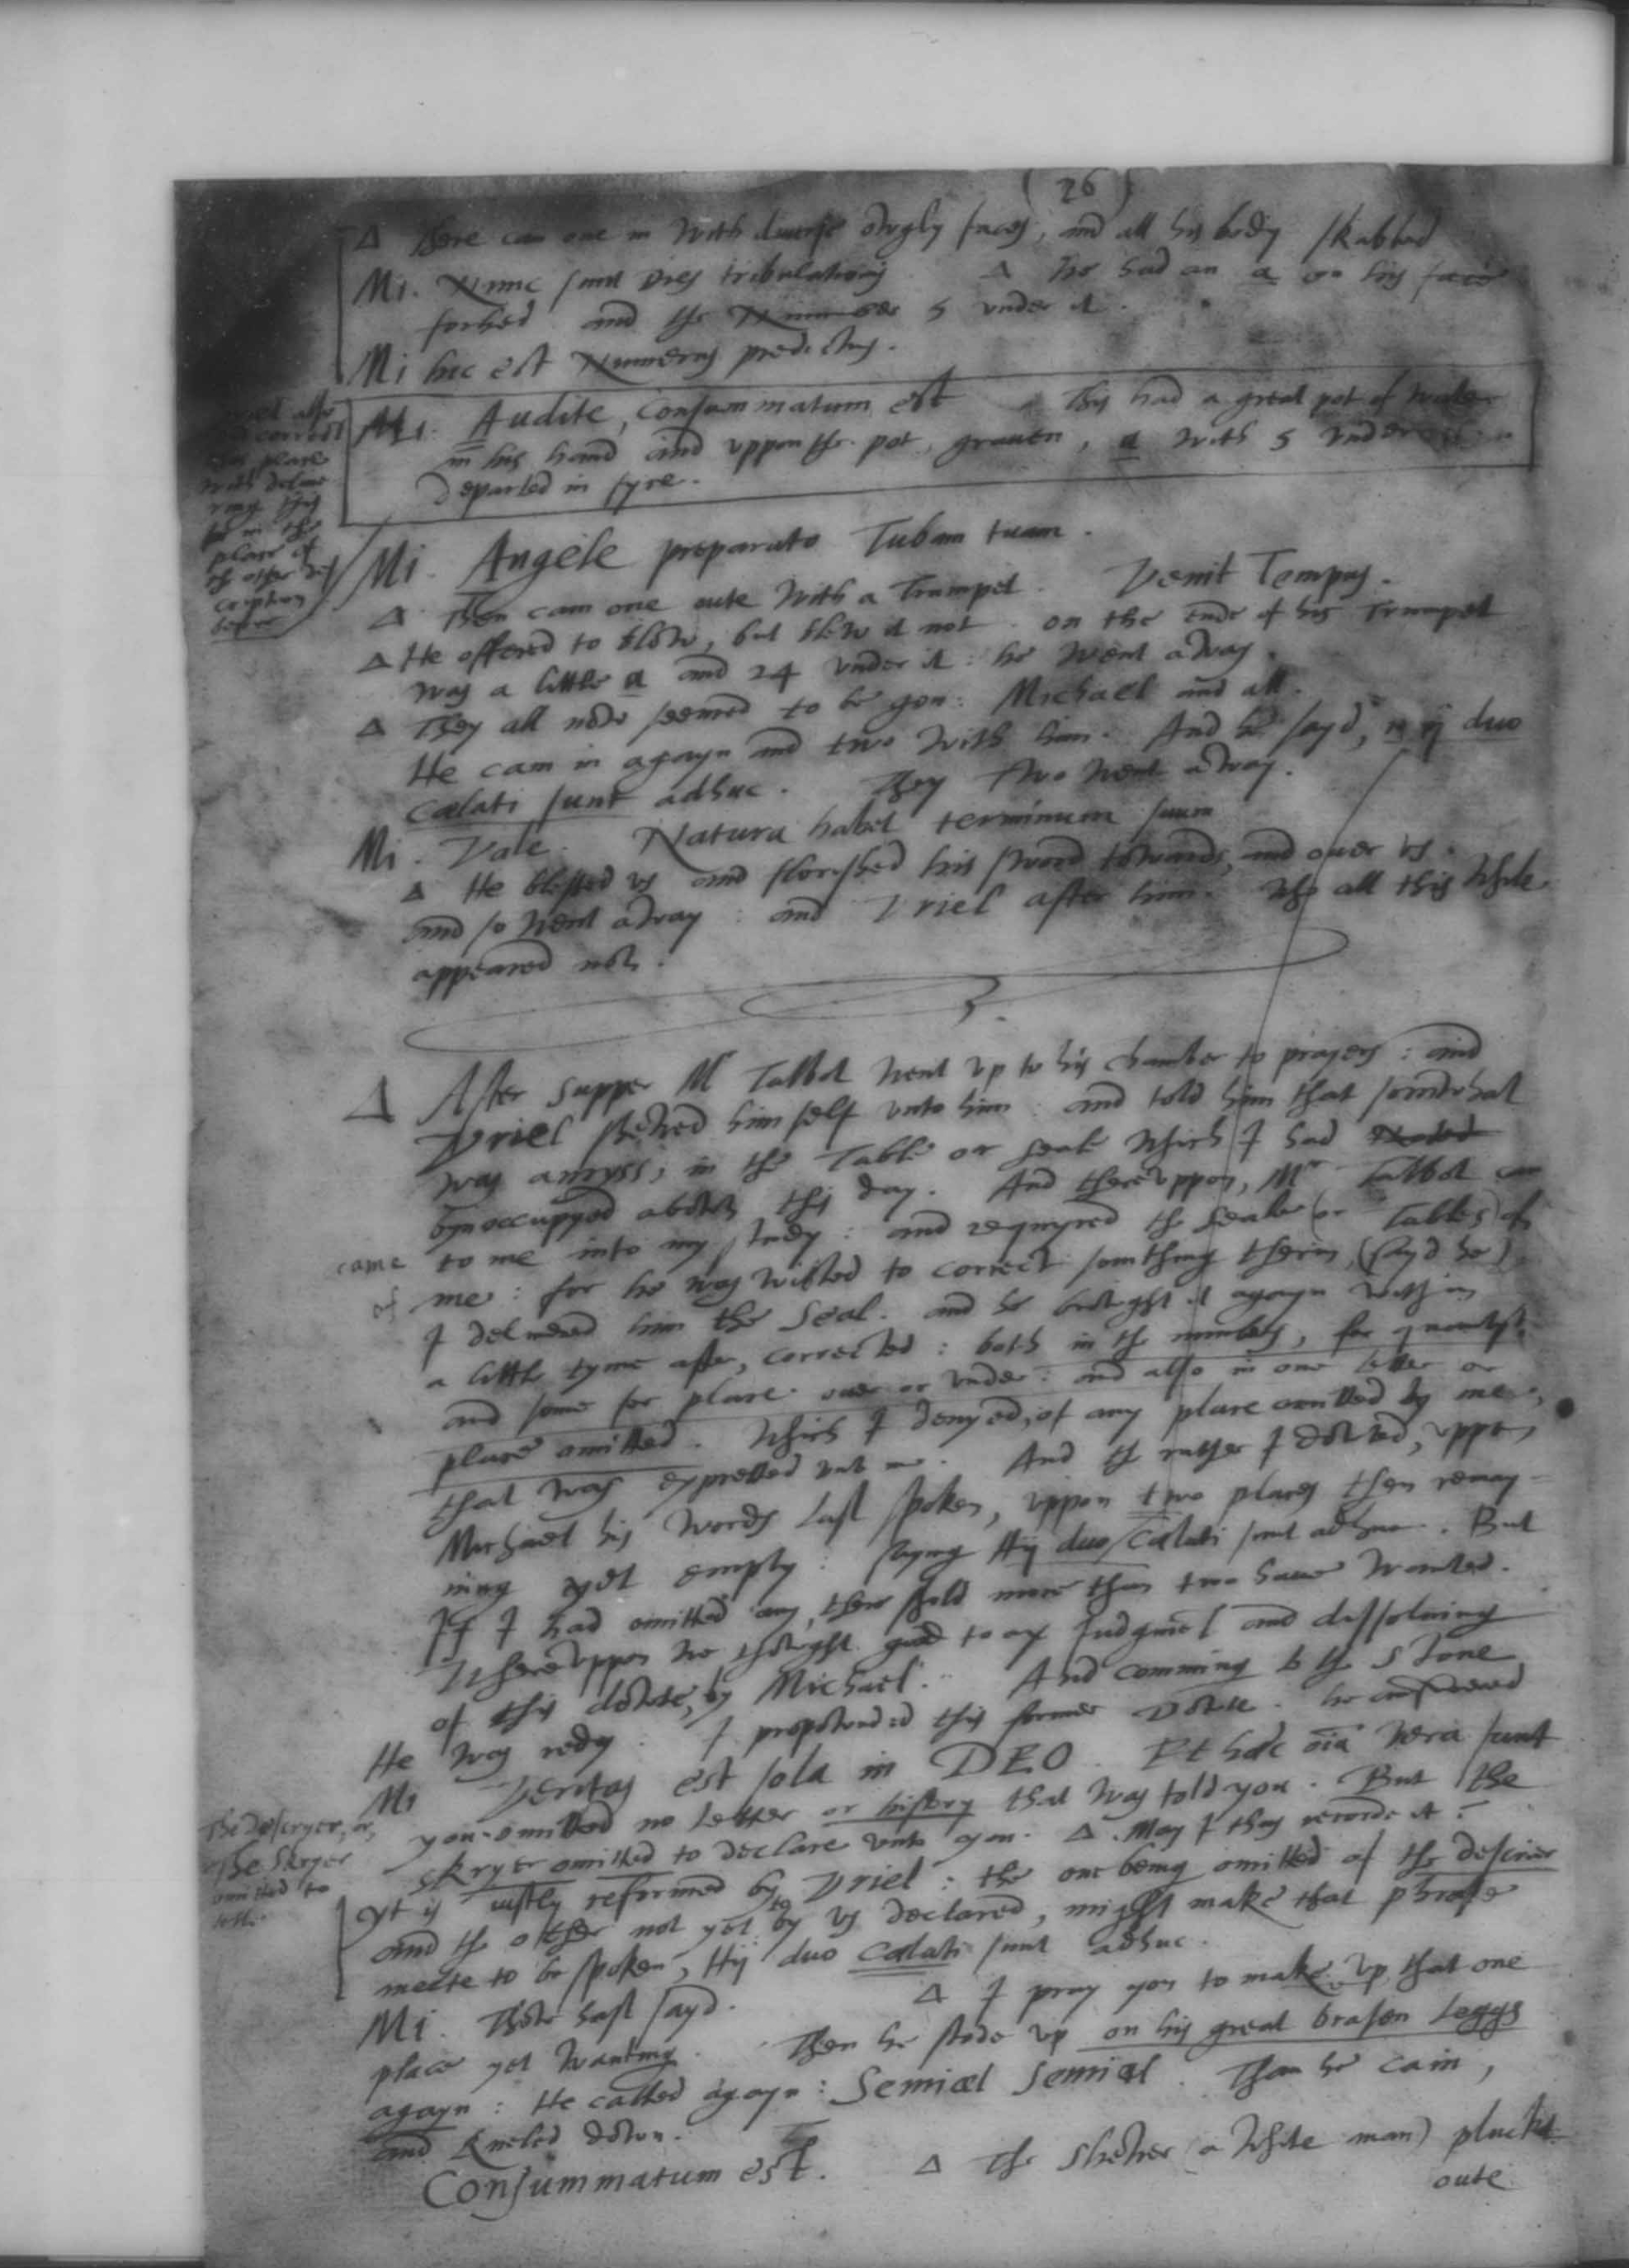 (26)
Δ There cam one in with diuerse owgly faces, and all his body skabbed
Mi. Nunc sunt Dies tribulationis Δ He had an a on his face
forhed and the Number 5 vnder it.
Mi hic est Numerus predictus.
Mi. Audite, Consummatum est This had a great pot of water
in his hand and vppon the pot, grauen, a with 5 vnder it
Departed in fyre.
Vriel also
did correct
this place
with deliue
ring this
to in the
place of
the other des
cription
before
Mi. Angele preparato Tubam tuam.
Δ Then cam one oute with a Trumpet. Venit Tempus.
Δ He offered to blow, but blew it not. on the ende of his Trumpet
was a little a and 24 vnder it: he went away.
Δ They all now seemed to be gon: Michael and all.
He cam in agayn and two with him. And he sayd, Hij duo
cælati sunt adhuc. They two went away.
Mi. Vale. Natura habet terminum suum
Δ He blessed vs and florished his sword towards, and ouer vs.
and so went away: and Vriel after him. Who all this while
appeared not.
Δ After supper Mr Talbot went vp to his chamber to prayers: and
Vriel shewed him self vnto him: and told him that somwhat
was amyss, in the Table or seale which I had
byn occupyed abowt this day. And therevppon, Mr Talbot cam
came to me into my study: and requyred the Seale (or Tables) of
of me: for he was willed to correct something therin, (sayd he)
I deliuered him the Seal. and he browght it agayn within
a little tyme after, corrected: both in the numbers, for quantity
and some for place ouer or vnder: and also in one letter or
place omitted. Which I denyed, of any place omitted by me,
that was expressed vnto me. And the rather I dowted, vppon
Michael his words last spoken, vppon two places then remay-
ning yet empty: saying Hij duo cælati sunt adhuc. But
If I had omitted any, there shold more than two haue wanted.
Wherevppon we thowght good to ax Judgment and dissoluing
of this dowte, by Michael. And comming to the Stone
He was redy. I propownded this former Dowte. he answered
Mi Veritas est sola in DEO. Et hæc oīa vera sunt
you omitted no letter or history that was told you. But the
skryer omitted to declare vnto you. Δ. May I thus recorde it?
The Descryer, or,
The Skryer
omitted to
tell.
yt is iustly reformed by Vriel: the one being omitted of the descrier
and the other not yet by to vs declared, might make that phrase
meete to be spoken, Hij duo cælati sunt adhuc.
Mi. Thow hast sayd. Δ I pray you to make vp that one
place yet wanting. Then he stode vp on his great brasen leggs
agayn: He called agayn: Semiæl Semiæl. Than he cam,
and kneled down.
Consummatum est. Δ The shewer (a white man) pluckt
oute